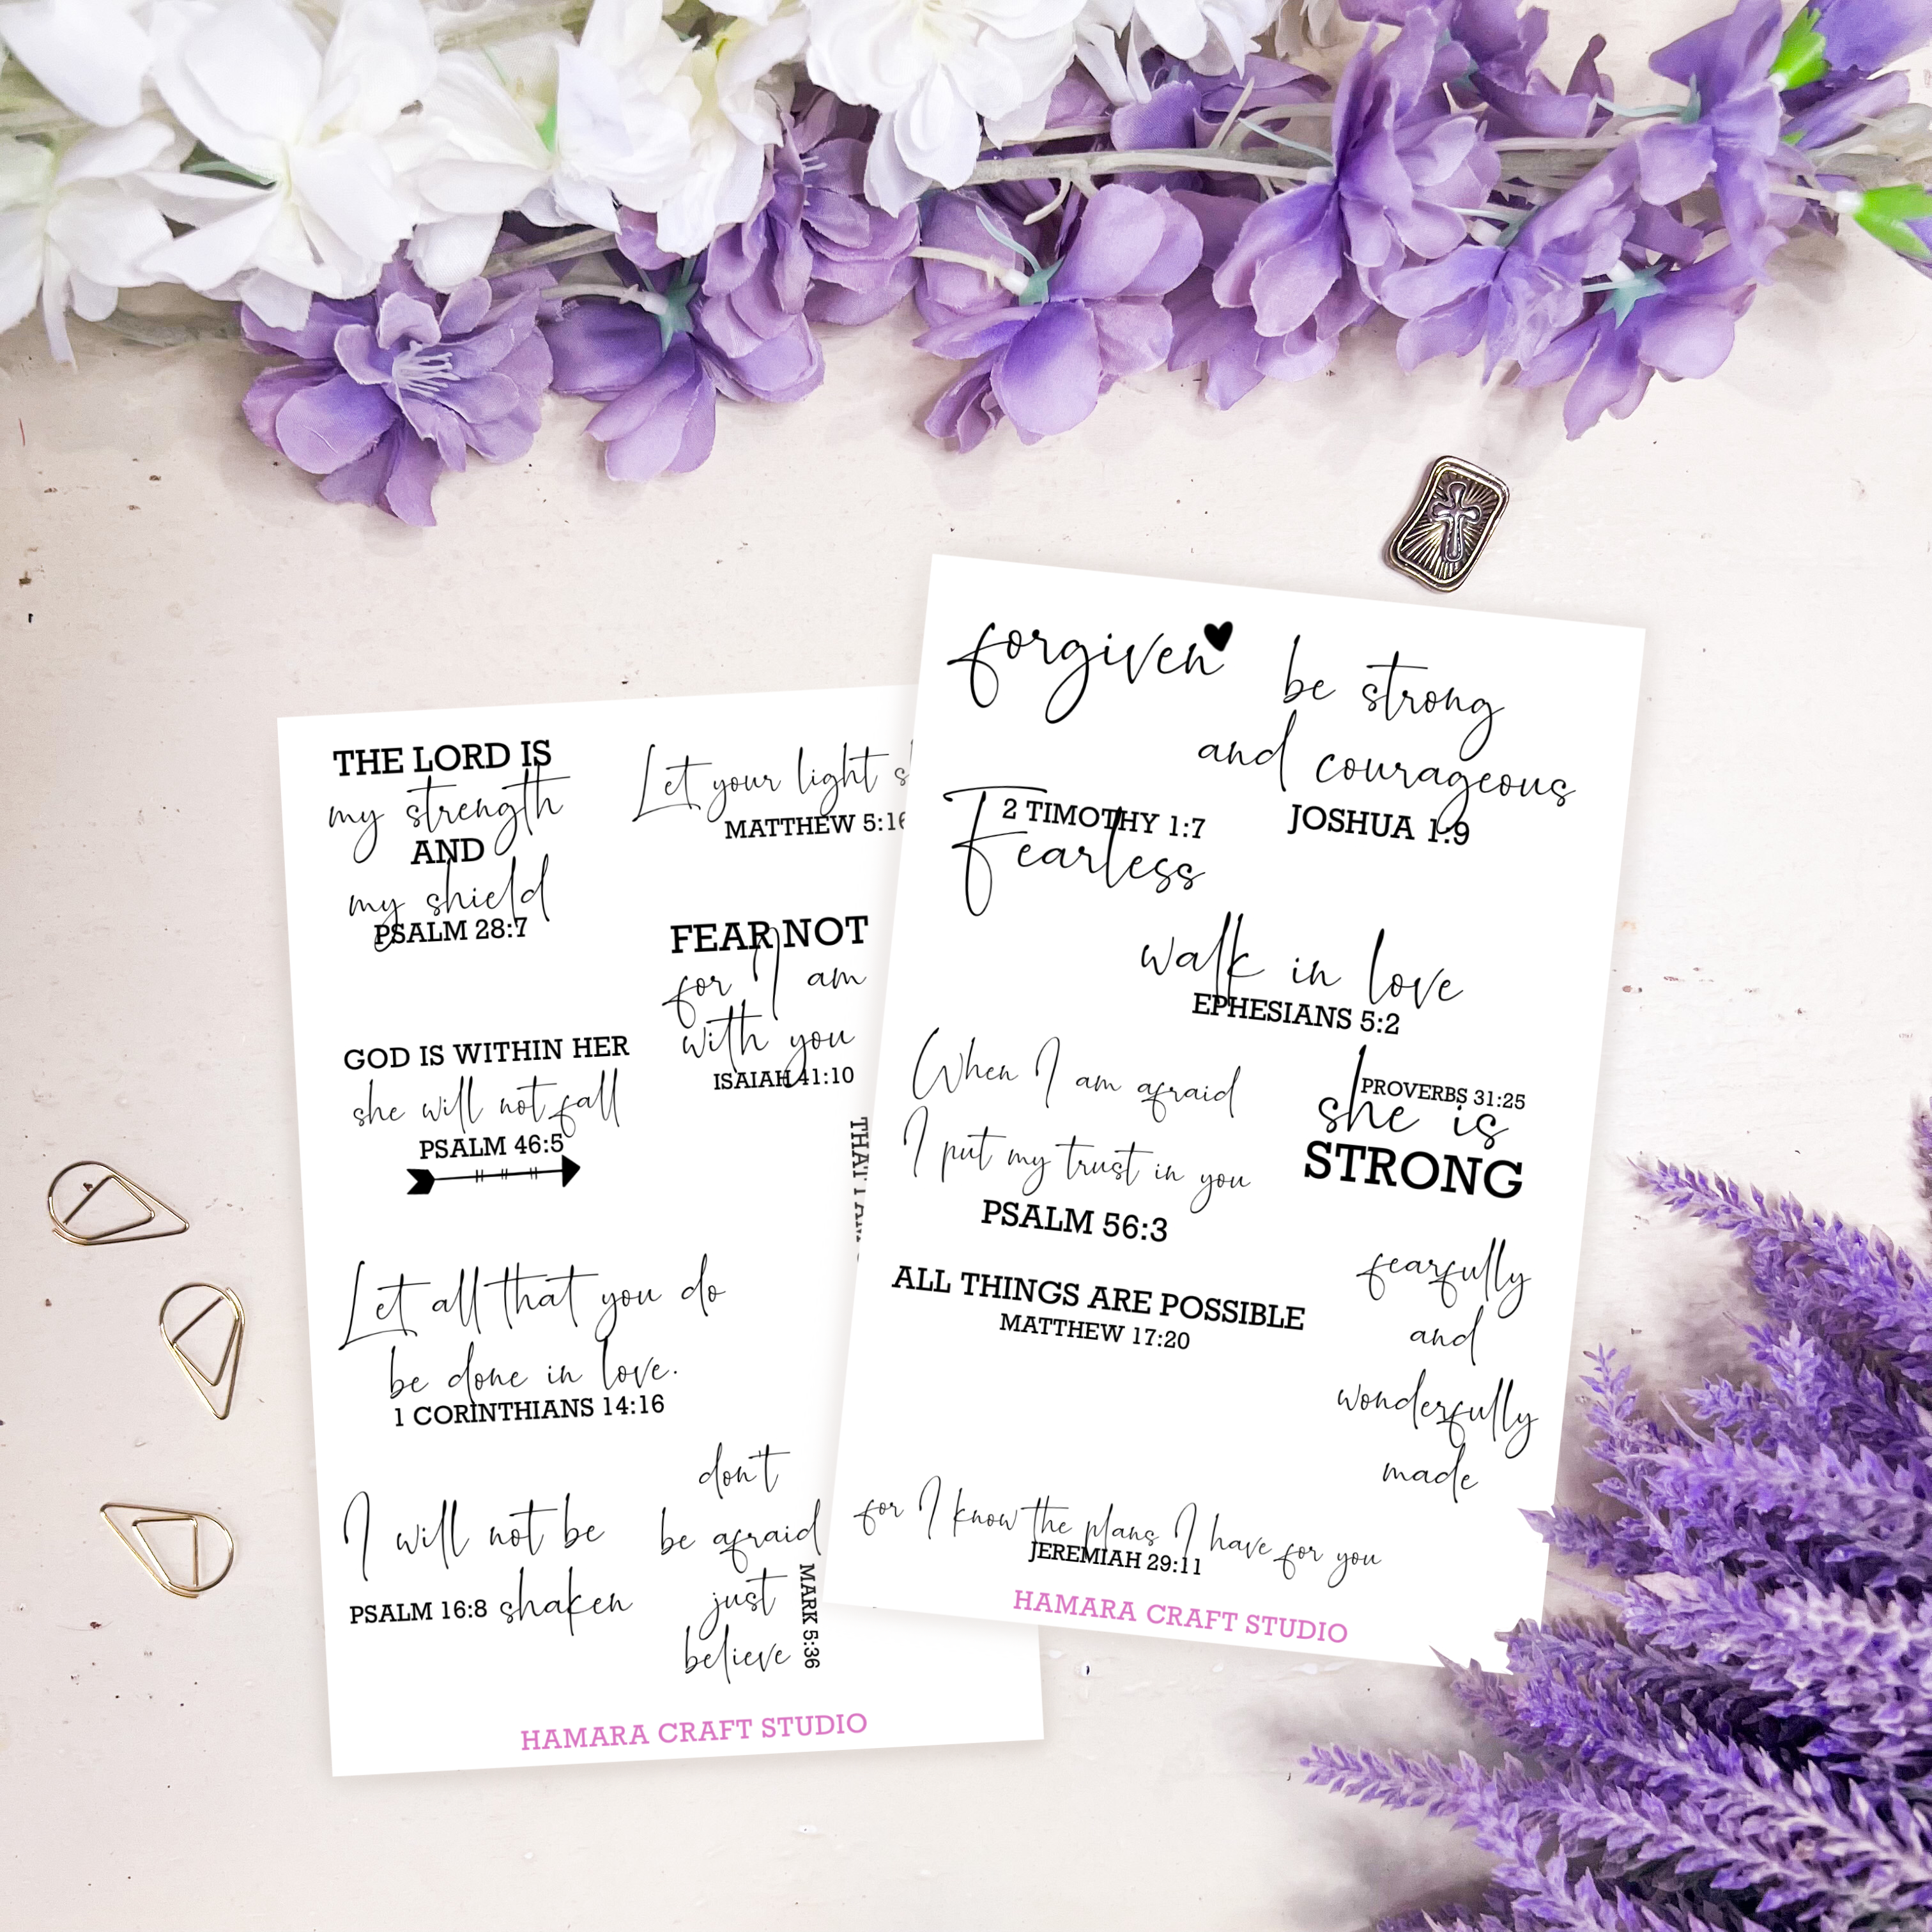 THE LORD IS
my strength
AND
my shield
PSALM 28:7
Let your light
MATTHEW 5:16
FEAR NOT
for I am
with you
ISAIAH 41:10
GOD IS WITHIN HER
she will not fall
PSALM 46:5
Let all that you do
be done in love.
1 CORINTHIANS 14:16
I will not be
PSALM 16:8 shaken
don't
be afraid
just
believe
MARK 5:36
HAMARA CRAFT STUDIO
forgiven
be strong
and courageous
JOSHUA 1:9
2 TIMOTHY 1:7
Fearless
walk in love
EPHESIANS 5:2
When I am afraid
I put my trust in you
PSALM 56:3
PROVERBS 31:25
she is
STRONG
ALL THINGS ARE POSSIBLE
MATTHEW 17:20
fearfully
and
wonderfully
made
for I know the plans I have for you
JEREMIAH 29:11
HAMARA CRAFT STUDIO